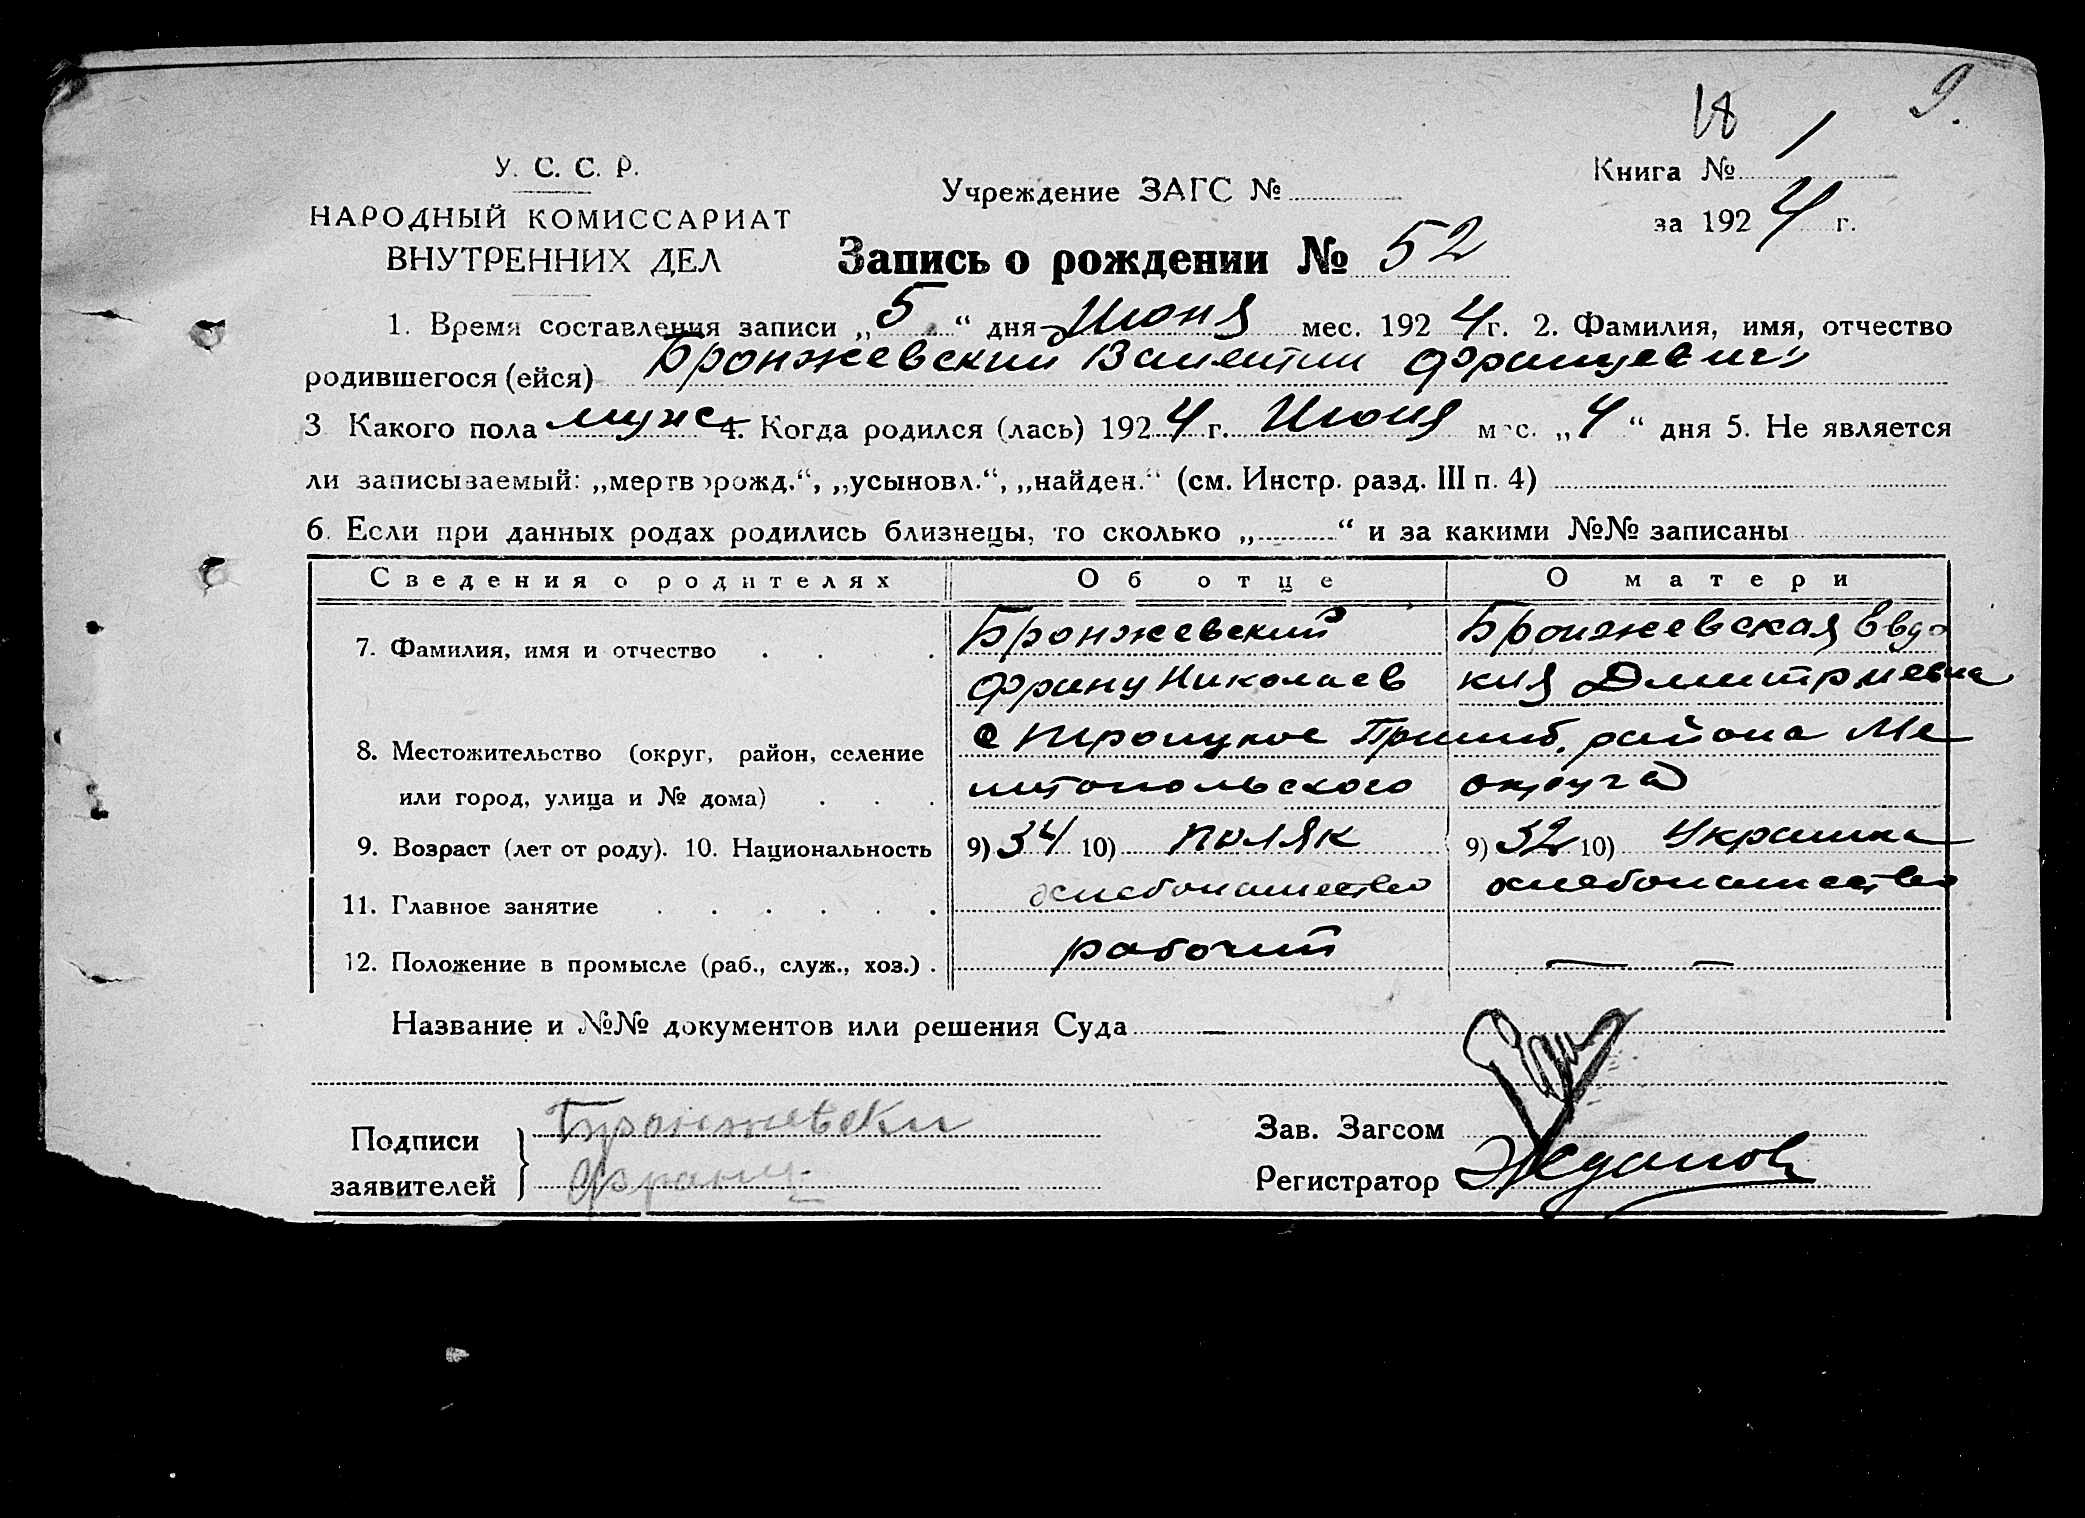 18 9.
У. С. С. Р.
НАРОДНЫЙ КОМИССАРИАТ
ВНУТРЕННИХ ДЕЛ
Учреждение ЗАГС №
Книга № 1
за 1924 г.
Запись о рождении № 52
1. Время составления записи „5“ дня Июня мес. 1924 г. 2. Фамилия, имя, отчество
родившегося (ейся) Бронжевский Валентин Францевич
3 Какого пола муж 4. Когда родился (лась) 1924 г. Июня мес. „4“ дня 5. Не является
ли записываемый: „мертворожд.“, „усыновл.“, „найден.“ (см. Инстр. разд. III п. 4)
6. Если при данных родах родились близнецы, то сколько „ “ и за какими №№ записаны
Сведения о родителях Об отце О матери
7. Фамилия, имя и отчество Бронжевский Бронжевская Евдо
Франц Николаев кия Дмитриевна
8. Местожительство (округ, район, селение с Троицкое Пришиб. района Ме
или город, улица и № дома) литопольского округа
9. Возраст (лет от роду). 10. Национальность 9) 34 10) поляк 9) 32 10) Украинка
11. Главное занятие хлебопашество хлебопашество
12. Положение в промысле (раб., служ., хоз.) рабочий — —
Название и №№ документов или решения Суда —
Подписи заявителей Бронжевски
Франц
Зав. Загсом
Регистратор Жданов